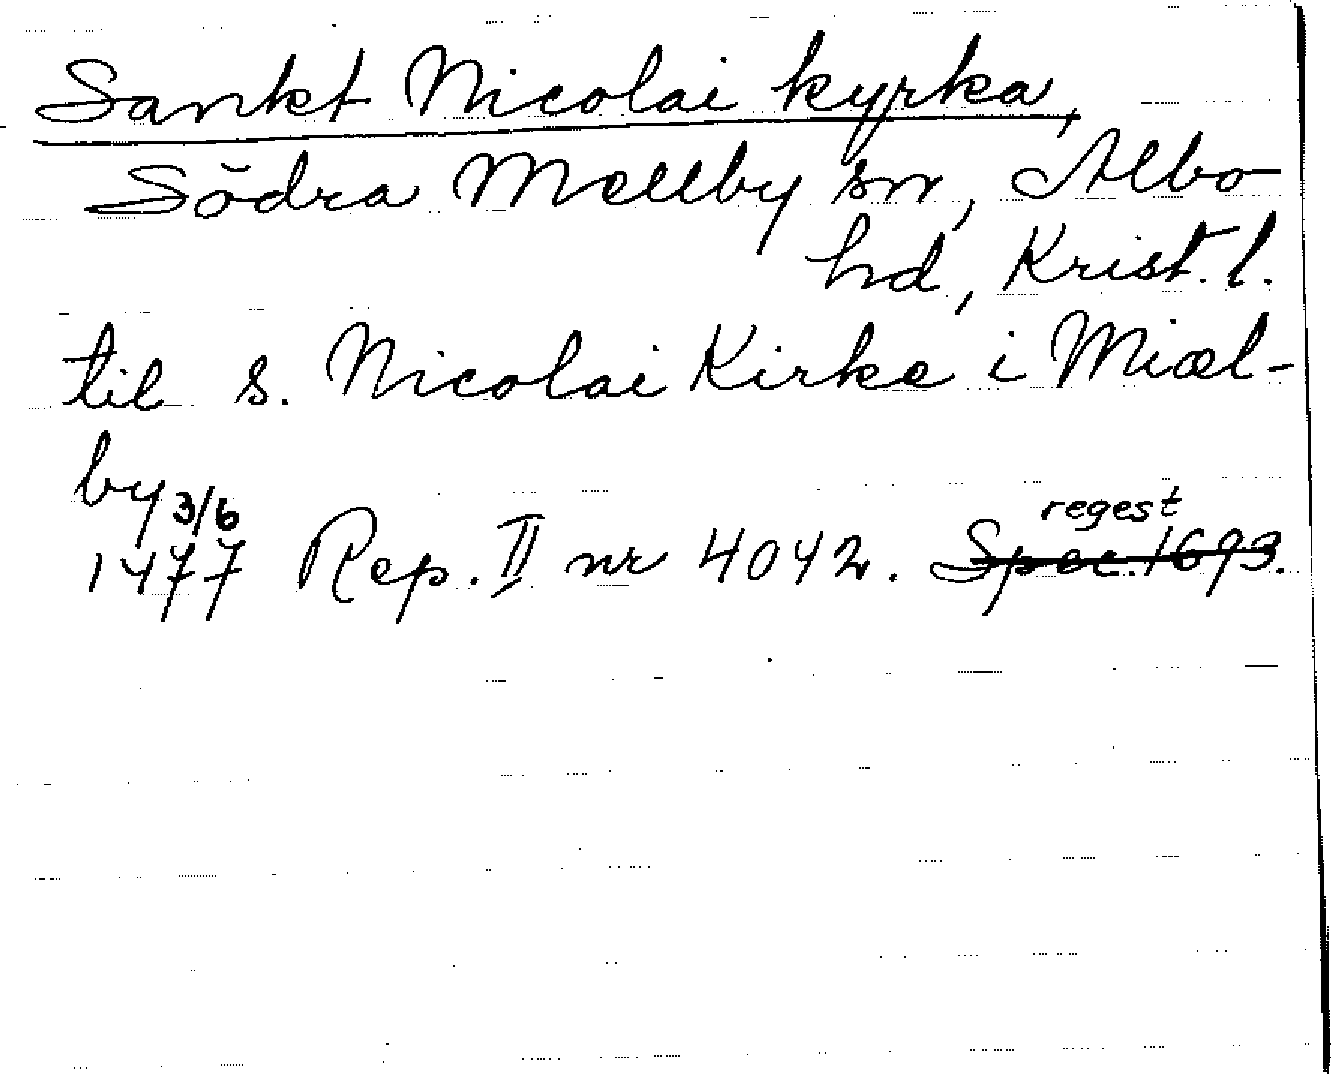 Sankt Nicolai kyrka,
Södra Mellby sn, Albo
hd, Krist. l.
til s. Nicolai Kirke i Miæl-
by 3/6
regest
1477 Rep. II nr 4042. Spec. 1693.